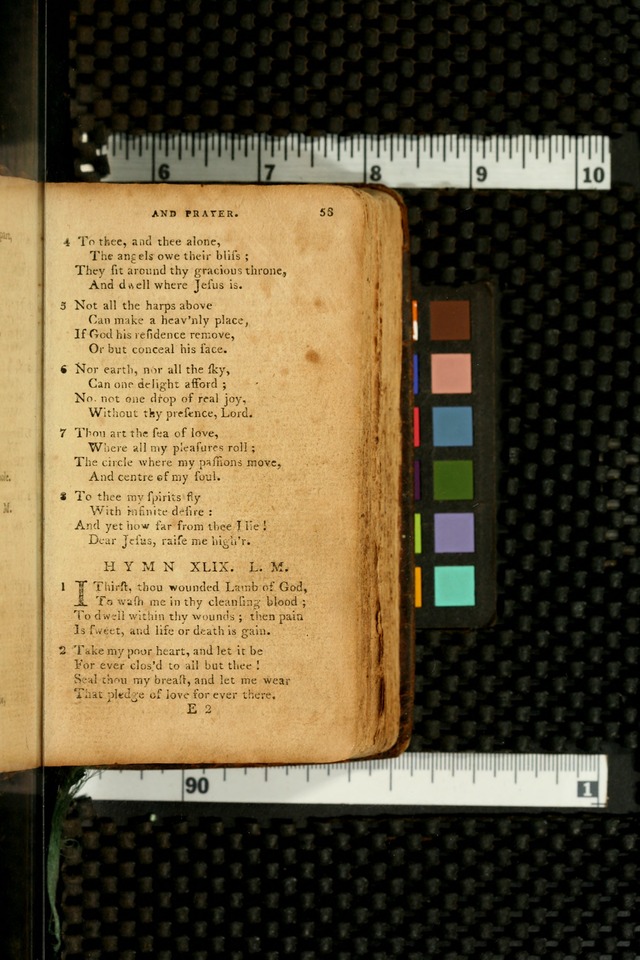 6 7 8 9 10
AND PRAYER. 53
4 To thee, and thee alone,
The angels owe their bliſs ;
They ſit around thy gracious throne,
And dwell where Jeſus is.
5 Not all the harps above
Can make a heav'nly place,
If God his reſidence remove,
Or but conceal his face.
6 Nor earth, nor all the ſky,
Can one delight afford ;
No, not one drop of real joy,
Without thy preſence, Lord.
7 Thou art the ſea of love,
Where all my pleaſures roll ;
The circle where my paſſions move,
And centre of my ſoul.
8 To thee my ſpirits fly
With infinite deſire :
And yet how far from thee I lie !
Dear Jeſus, raiſe me high'r.
HYMN XLIX. L. M.
1 I Thirſt, thou wounded Lamb of God,
To waſh me in thy cleanſing blood ;
To dwell within thy wounds ; then pain
Is ſweet, and life or death is gain.
2 Take my poor heart, and let it be
For ever clos'd to all but thee !
Seal thou my breaſt, and let me wear
That pledge of love for ever there.
E 2
M.
90 1